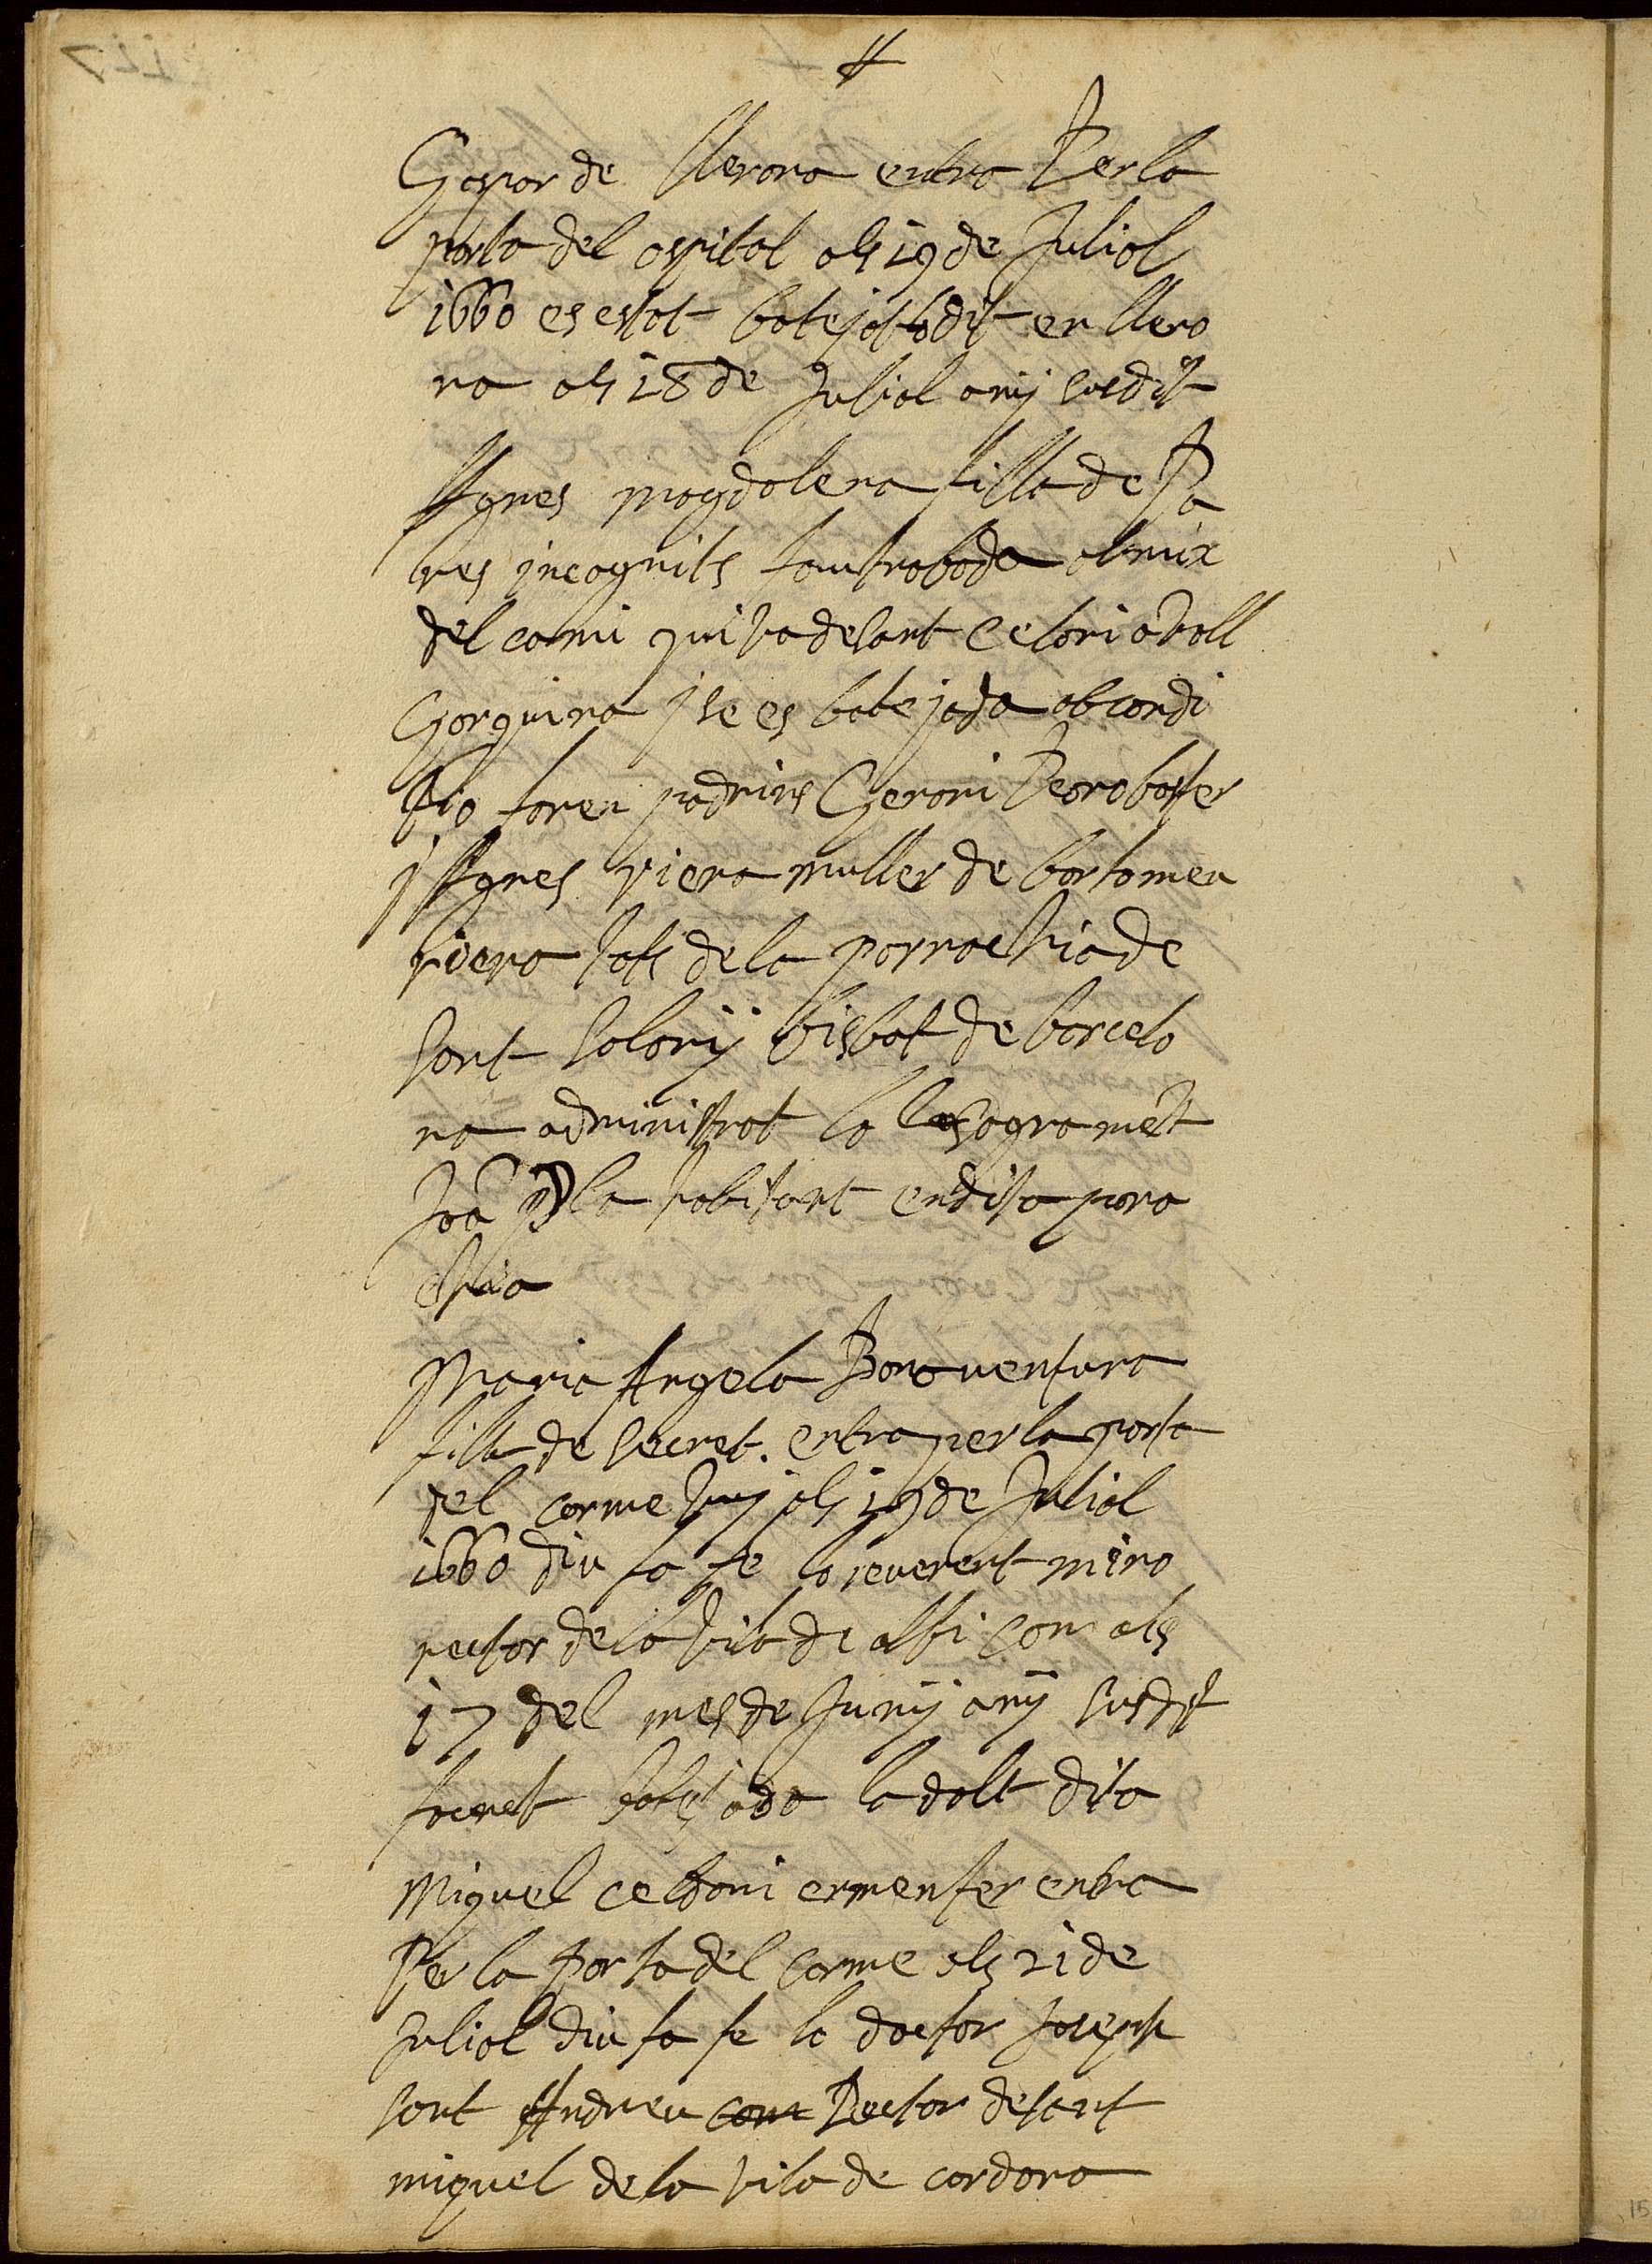 Gaspar de llerona entra Per la
porta del ospital als 19 de Juliol
1660 es estat batejat lo dit en llero
na als 18 de Juliol anÿ susdit
Agnes magdalena filla de Pa
res incognits fou trobada al mix
del cami qui va de sant Celoni a Vall
Gorguina j se es batejada ab condi
tio foren padrins Geroni Pera baster
j Agnes riera muller de bartomeu
riera tots de la parrochia de
sant salonÿ bisbat de barcelo
na administrat lo sagramet
Joã pla habitant en dita para
chia
Maria Angela Bonaventura
filla de secret. entra per la porta
del carme huÿ als 19 de Juliol
1660 diu fa fe lo reverent miro
rector de la vila de albi com als
17 del mes de Junÿ anÿ susdit
fonch batejada la dalt dita
Miquel Celdoni ermenter entra
Per la porta del carme als 21 de
Juliol diu fa fe lo doctor Joseph
sant Andreu com Rector de sant
miquel de la vila de cardona